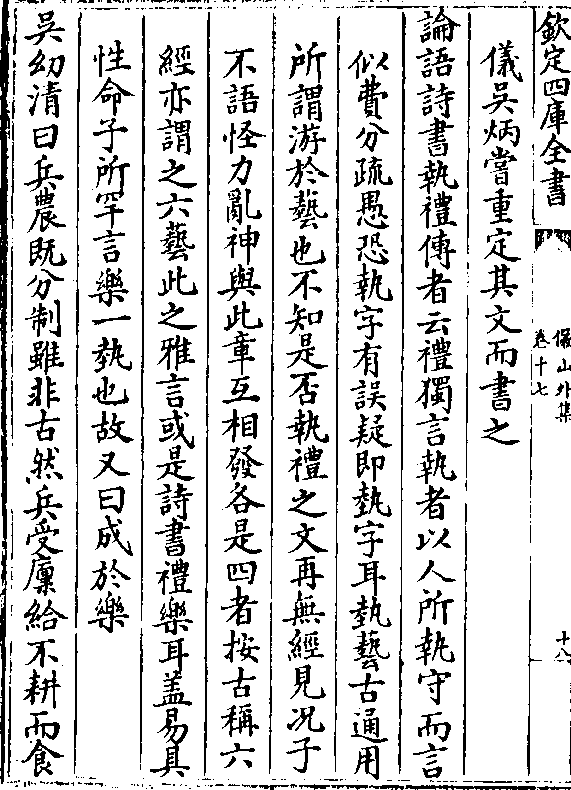 欽定四庫全書
儼山外集
卷十七
十八
儀吳炳嘗重定其文而書之
論語詩書執禮傳者云禮獨言執者以人所執守而言
似費分疏愚恐執字有誤疑即埶字耳埶藝古通用
所謂游於藝也不知是否執禮之文再無經見况子
不語怪力亂神與此章互相發各是四者按古稱六
經亦謂之六藝此之雅言或是詩書禮樂耳盖易具
性命子所罕言樂一埶也故又曰成於樂
吳幼清曰兵農既分制雖非古然兵受廩給不耕而食